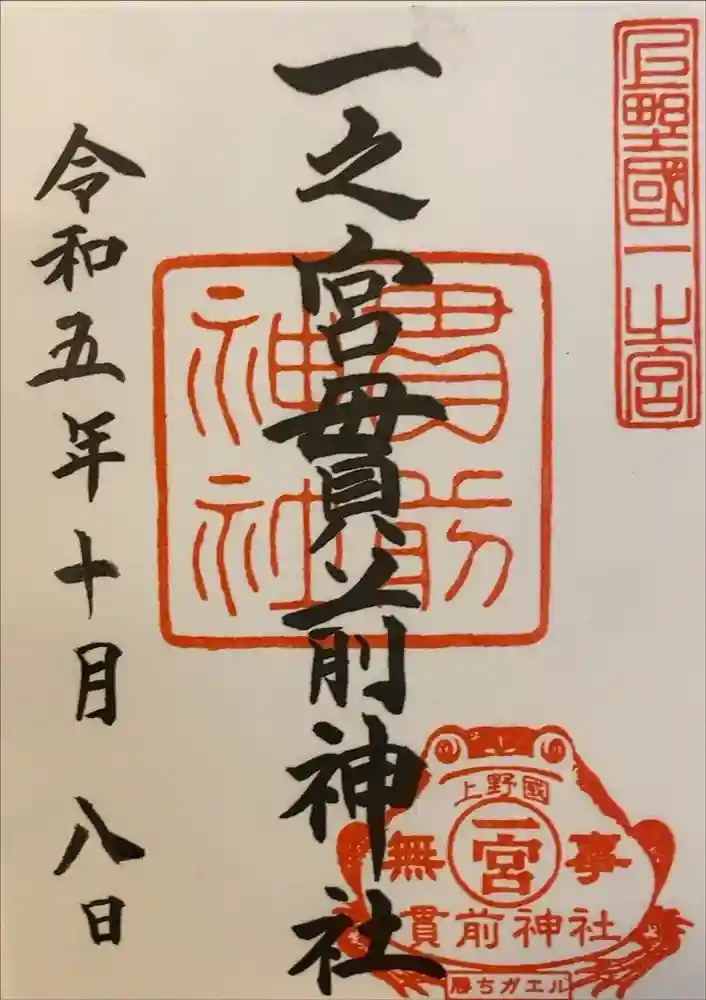 上野國一之宮
一之宮貫前神社
貫前
神社
令和五年十月八日
上野國
無一宮事
貫前神社
勝ちガエル